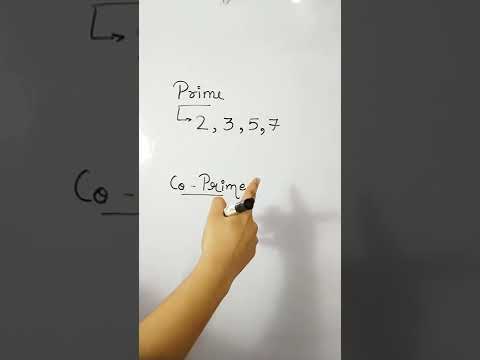 Prime
2, 3, 5, 7
Co-Prime